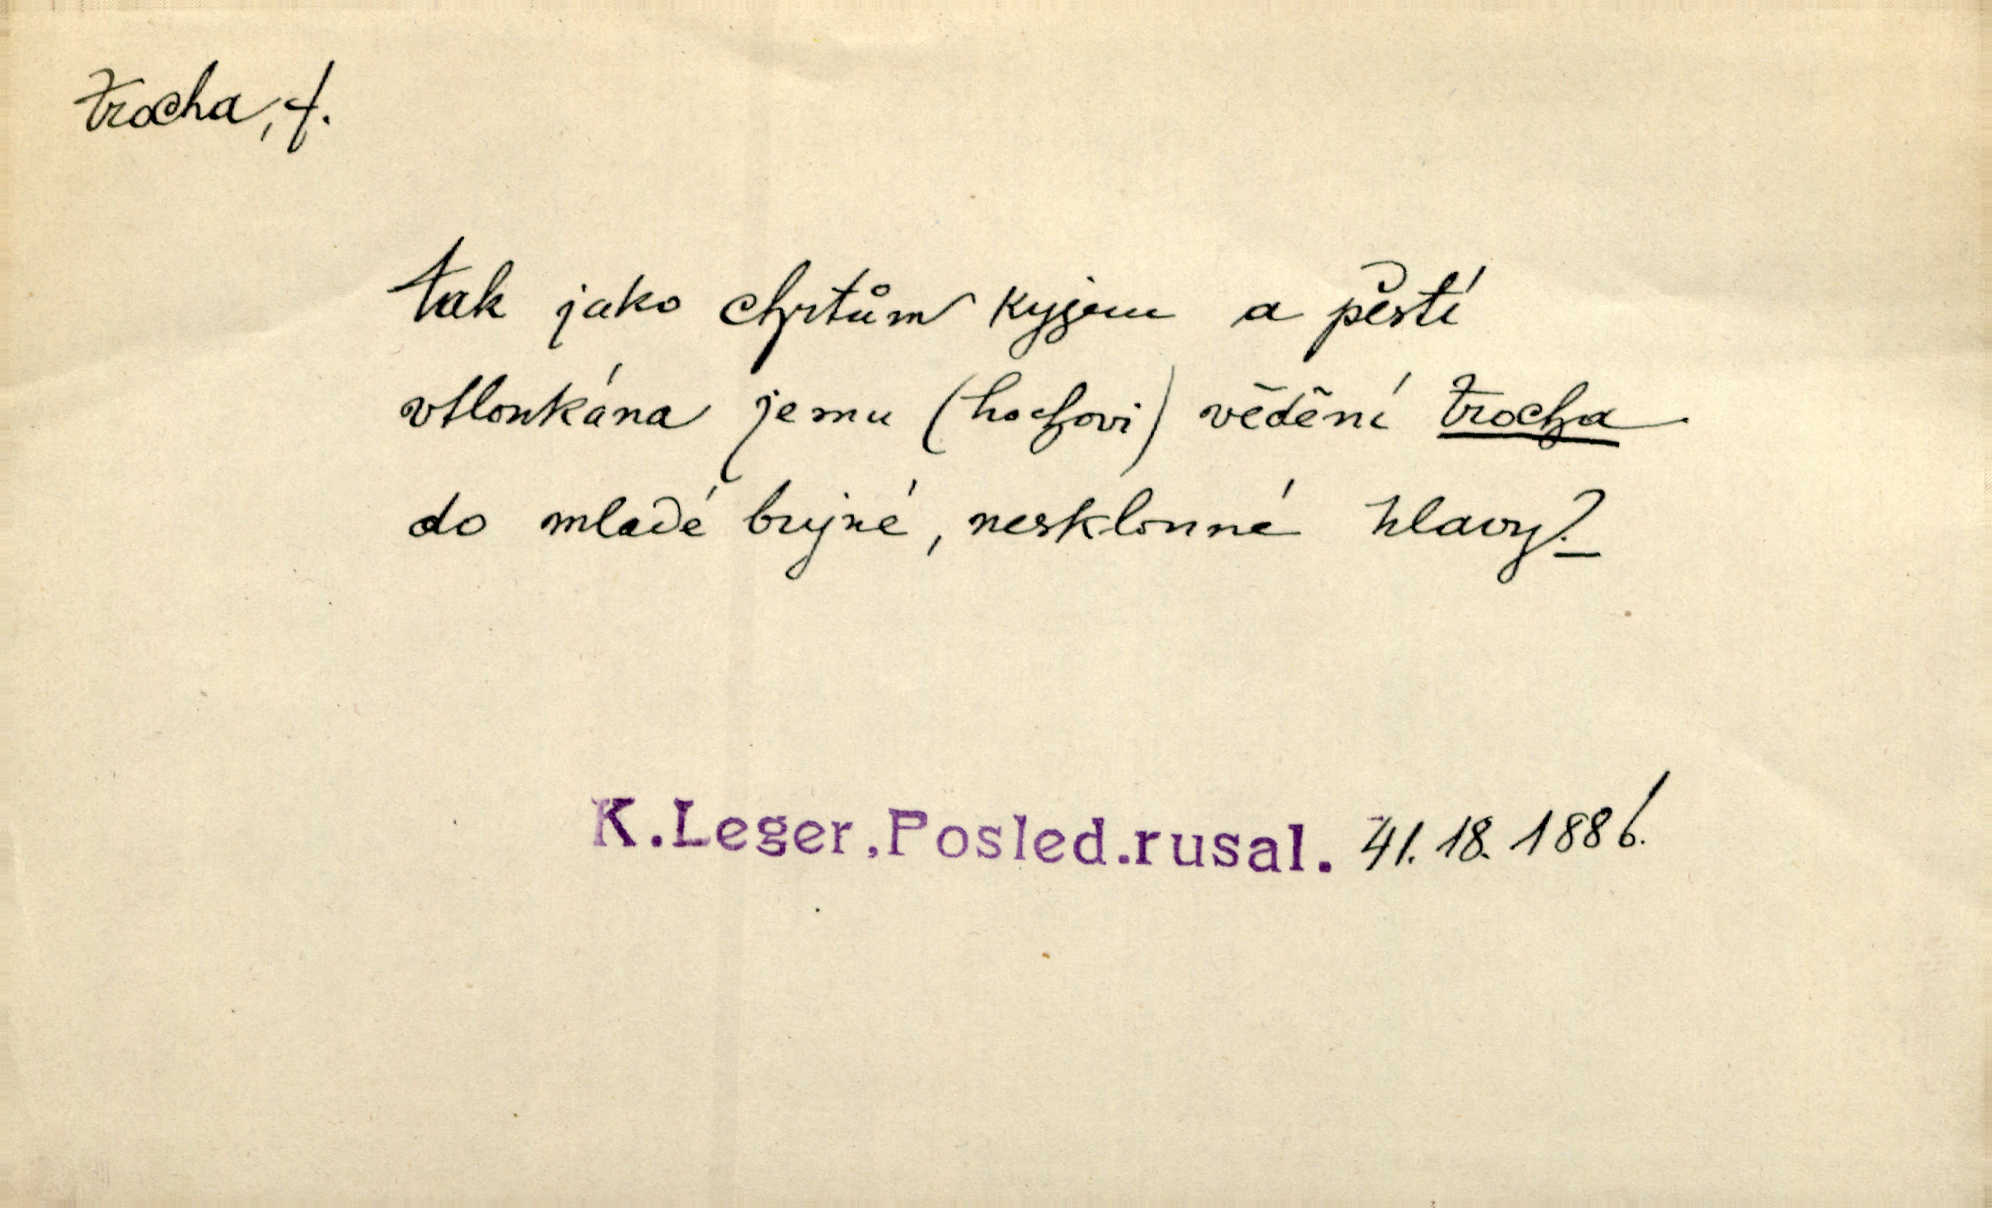 trocha, f.
tak jako chrtům kyjem a pěstí
vtloukána jemu (hochovi) vědění trocha
do mladé bujné, nesklonné hlavy?
K.Leger,Posled.rusal. 41. 18. 1886.